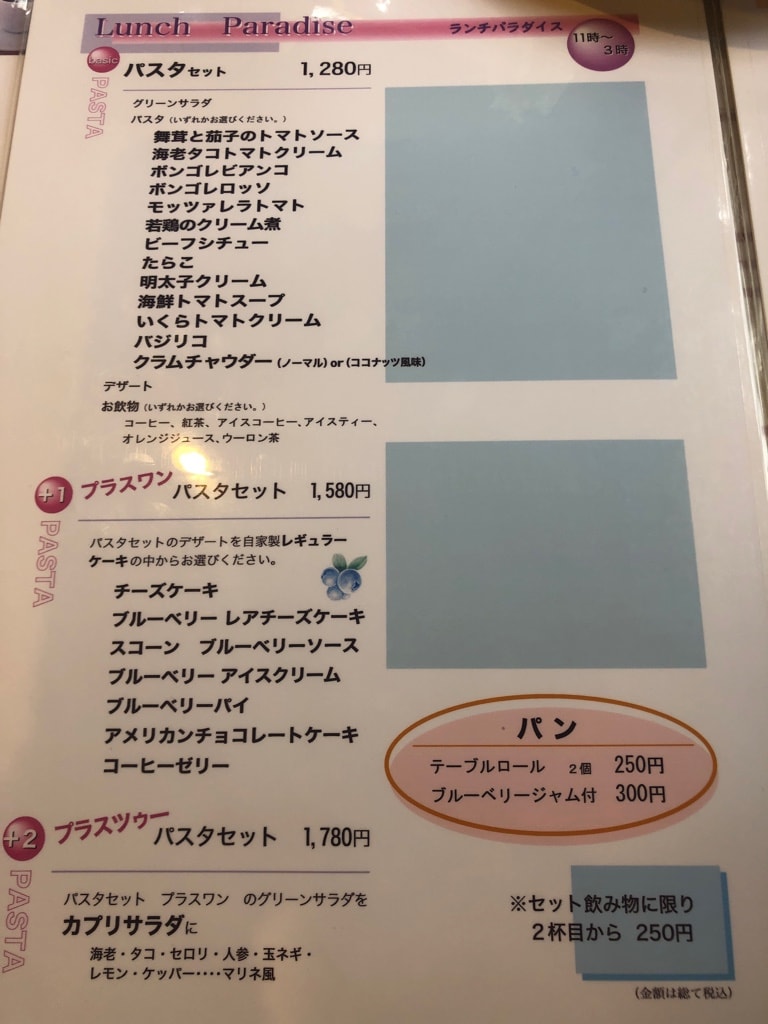 Lunch Paradise ランチパラダイス 11時〜3時
basic PASTA
パスタセット 1,280円
グリーンサラダ
パスタ（いずれかお選びください。）
舞茸と茄子のトマトソース
海老タコトマトクリーム
ボンゴレビアンコ
ボンゴレロッソ
モッツァレラトマト
若鶏のクリーム煮
ビーフシチュー
たらこ
明太子クリーム
海鮮トマトスープ
いくらトマトクリーム
バジリコ
クラムチャウダー（ノーマル）or（ココナッツ風味）
デザート
お飲物（いずれかお選びください。）
コーヒー、紅茶、アイスコーヒー、アイスティー、
オレンジジュース、ウーロン茶
+1 PASTA
プラスワン パスタセット 1,580円
パスタセットのデザートを自家製レギュラー
ケーキの中からお選びください。
チーズケーキ
ブルーベリー レアチーズケーキ
スコーン ブルーベリーソース
ブルーベリー アイスクリーム
ブルーベリーパイ
アメリカンチョコレートケーキ
コーヒーゼリー
パン
テーブルロール 2個 250円
ブルーベリージャム付 300円
+2 PASTA
プラスツゥー パスタセット 1,780円
パスタセット プラスワン のグリーンサラダを
カプリサラダに
海老・タコ・セロリ・人参・玉ネギ・
レモン・ケッパー・・・・マリネ風
※セット飲み物に限り
2杯目から 250円
（金額は総て税込）